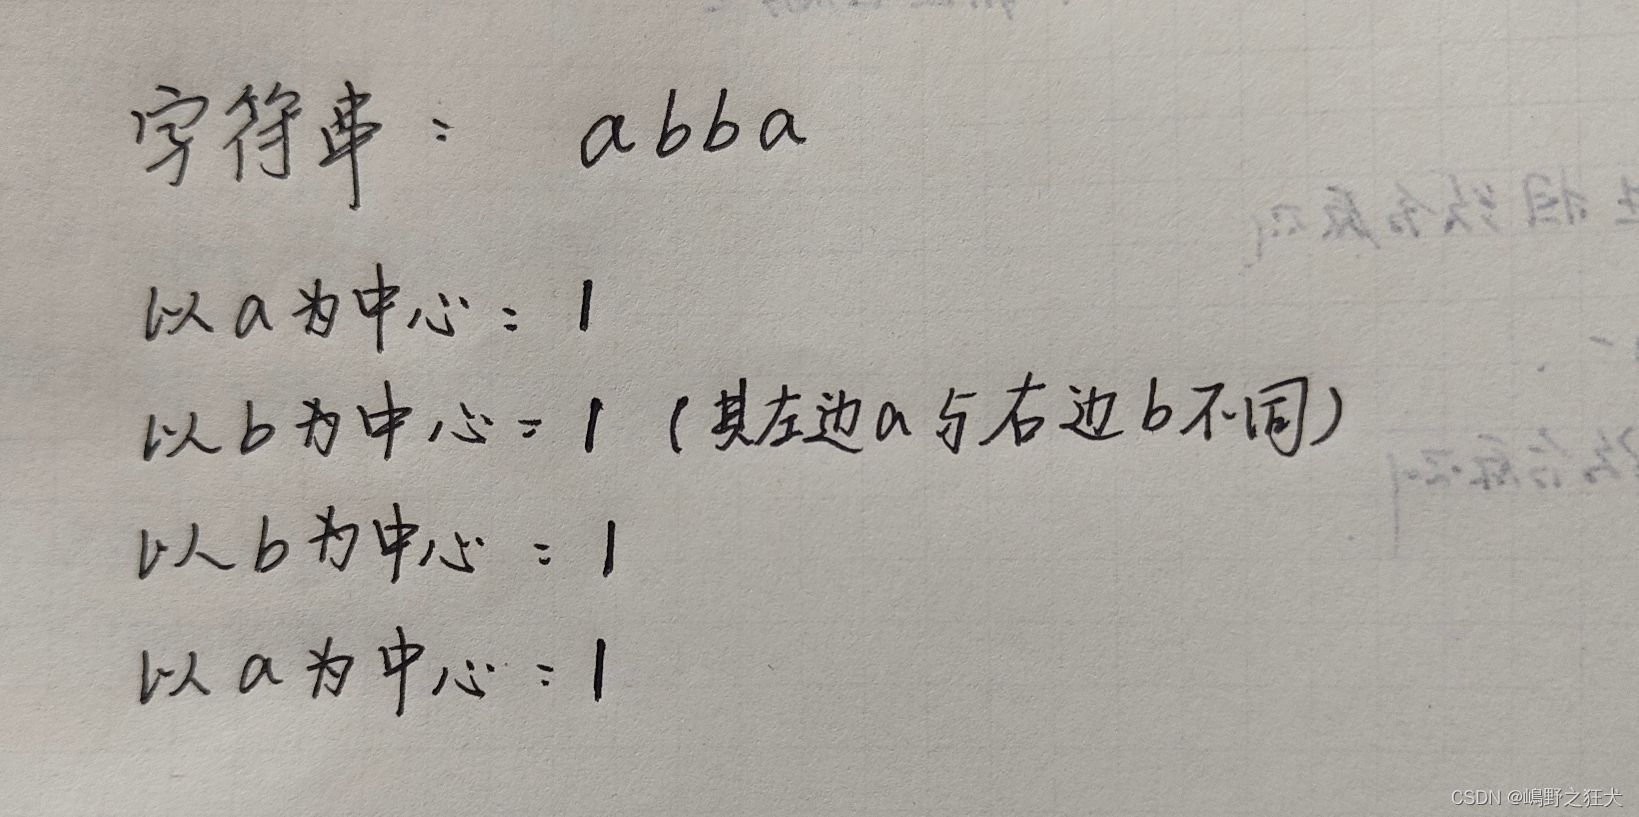 字符串： abba
以a为中心：1
以b为中心：1（其左边a与右边b不同）
以b为中心：1
以a为中心：1
CSDN @嶋野之狂犬